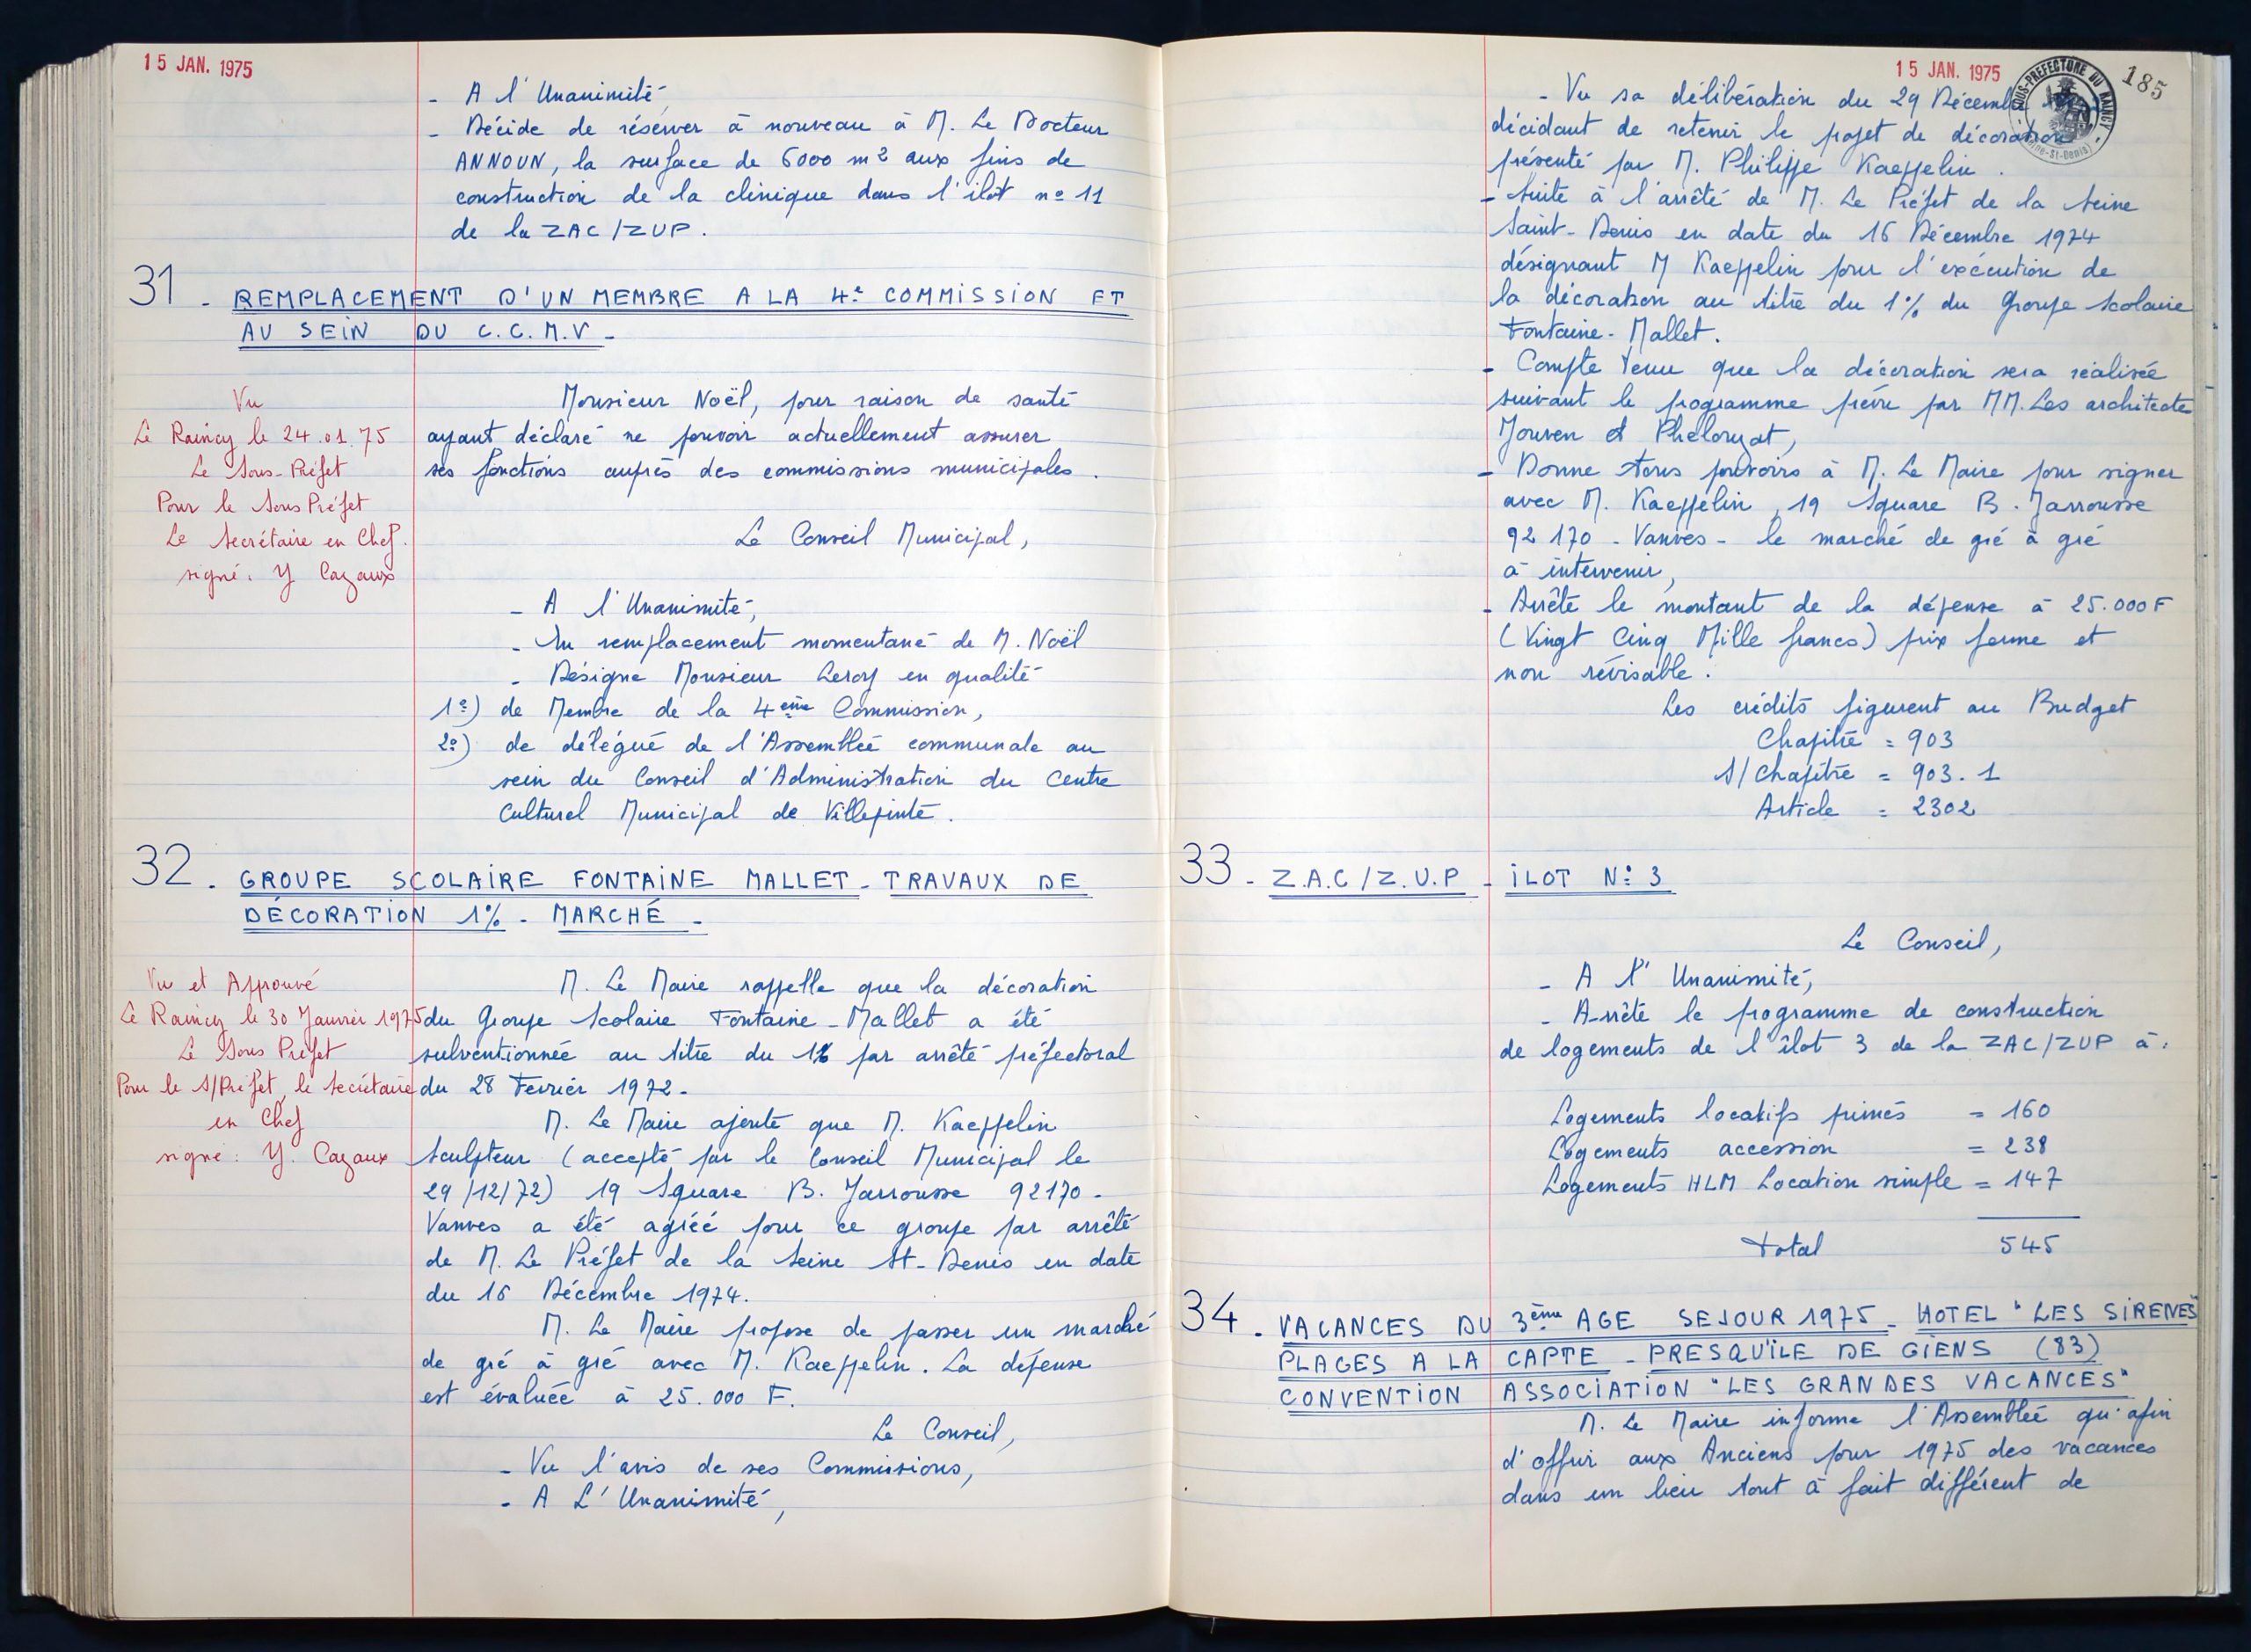 15 JAN. 1975
- A l'Unanimité,
- Décide de réserver à nouveau à M. Le Docteur
ANNOUN, la surface de 6000 m2 aux fins de
construction de la clinique dans l'ilôt nº 11
de la ZAC/ZUP.
31 - REMPLACEMENT D'UN MEMBRE A LA 4e COMMISSION ET
AU SEIN DU C.C.M.V -
Vu
Le Raincy le 24.01.75
Le Sous-Préfet
Pour le Sous Préfet
Le Secrétaire en Chef.
signé: Y Cazaux
Monsieur Noël, pour raison de santé
ayant déclaré ne pouvoir actuellement assurer
ses fonctions auprès des commissions municipales.
Le Conseil Municipal,
- A l'Unanimité,
- Au remplacement momentané de M. Noël
- Désigne Monsieur Leroy en qualité
1º) de Membre de la 4ème Commission,
2º) de délégué de l'Assemblée communale au
sein du Conseil d'Administration du Centre
Culturel Municipal de Villepinte.
32. GROUPE SCOLAIRE FONTAINE MALLET - TRAVAUX DE
DÉCORATION 1% - MARCHÉ -
Vu et Approuvé
Le Raincy le 30 Janvier 1975
Le Sous Préfet
Pour le S/Préfet, le Secrétaire
en Chef
signé: Y. Cazaux
M. Le Maire rappelle que la décoration
du Groupe Scolaire Fontaine-Mallet a été
subventionnée au titre du 1% par arrêté préfectoral
du 28 Février 1972.
M. Le Maire ajoute que M. Kaeppelin
Sculpteur (accepté par le Conseil Municipal le
29/12/72) 19 Square B. Jarrousse 92170 -
Vanves a été agréé pour ce groupe par arrêté
de M. Le Préfet de la Seine St-Denis en date
du 16 Décembre 1974.
M. Le Maire propose de passer un marché
de gré à gré avec M. Kaeppelin. La dépense
est évaluée à 25.000 F.
Le Conseil,
- Vu l'avis de ses Commissions,
- A L'Unanimité,
15 JAN. 1975
185
SOUS-PREFECTURE DU RAINCY
- Vu sa délibération du 29 Décembre
décidant de retenir le projet de décoration
présenté par M. Philippe Kaeppelin.
- Suite à l'arrêté de M. Le Préfet de la Seine
Saint-Denis en date du 16 Décembre 1974
désignant M Kaeppelin pour l'exécution de
la décoration au titre du 1% du Groupe Scolaire
Fontaine-Mallet.
- Compte tenu que la décoration sera réalisée
suivant le programme prévu par MM. Les architecte
Jouven et Phelouzat,
- Donne tous pouvoirs à M. Le Maire pour signer
avec M. Kaeppelin, 19 Square B. Jarrousse
92 170 - Vanves - le marché de gré à gré
à intervenir,
- Arrête le montant de la dépense à 25.000 F
(Vingt Cinq Mille francs) prix ferme et
non révisable.
Les crédits figurent au Budget
Chapitre = 903
S/Chapitre = 903.1
Article = 2302
33 - Z.A.C/Z.U.P - ILOT Nº 3
Le Conseil,
- A l'Unanimité,
- Arrête le programme de construction
de logements de l'îlot 3 de la ZAC/ZUP à:
Logements locatifs primés = 160
Logements accession = 238
Logements HLM Location simple = 147
Total 545
34 - VACANCES DU 3ème AGE SEJOUR 1975 - HOTEL "LES SIRENES"
PLAGES A LA CAPTE - PRESQU'ILE DE GIENS (83)
CONVENTION ASSOCIATION "LES GRANDES VACANCES"
M. Le Maire informe l'Assemblée qu'afin
d'offrir aux Anciens pour 1975 des vacances
dans un lieu tout à fait différent de